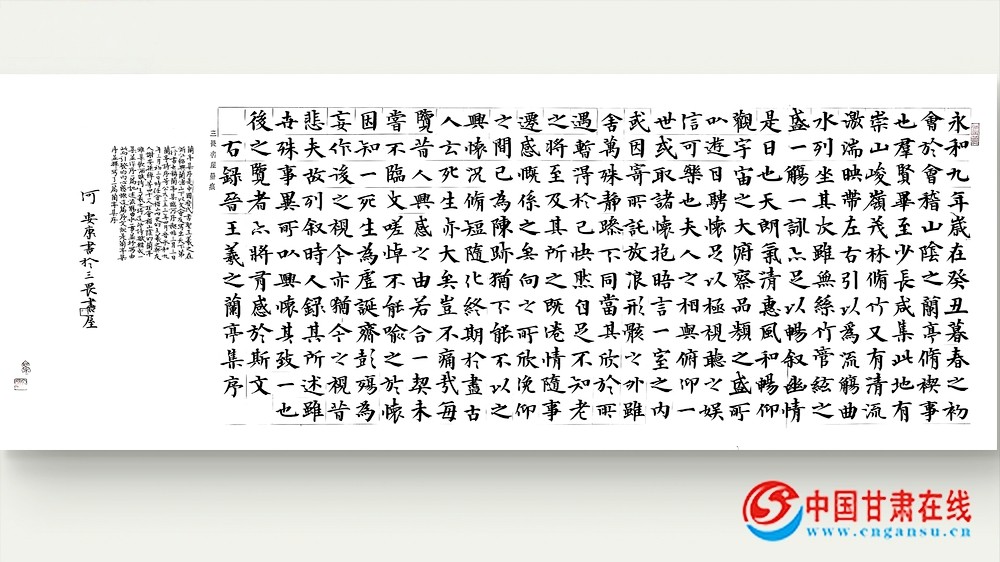 永和九年歲在癸丑暮春之初
會於會稽山陰之蘭亭脩禊事
也羣賢畢至少長咸集此地有
崇山峻嶺茂林脩竹又有清流
激湍映帶左右引以為流觴曲
水列坐其次雖無絲竹管絃之
盛一觴一詠亦足以暢叙幽情
是日也天朗氣清惠風和暢仰
觀宇宙之大俯察品類之盛所
以遊目騁懷足以極視聽之娛
信可樂也夫人之相與俯仰一
世或取諸懷抱晤言一室之内
或因寄所託放浪形骸之外雖
舍萬殊靜躁不同當其欣於所
遇暫得於己怏然自足不知老
之將至及其所之既倦情隨事
遷感慨係之矣向之所欣俛仰
之間已為陳跡猶不能不以之
興懷況脩短隨化終期於盡古
人云死生亦大矣豈不痛哉每
覽昔人興感之由若合一契未
嘗不臨文嗟悼不能喻之於懷
因知一死生為虛誕齊彭殤為
妄作後之視今亦猶今之視昔
悲夫故列叙時人錄其所述雖
世殊事異所以興懷其致一也
後之覽者亦將有感於斯文
右錄晉王羲之蘭亭集序
何安康書於三畏書屋
中国甘肃在线
www.cngansu.cn